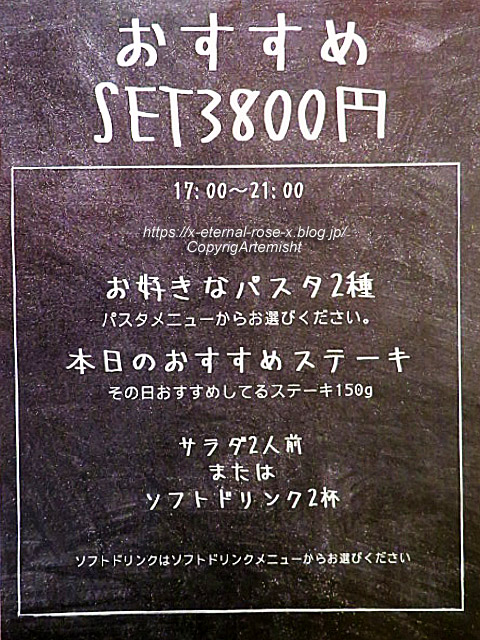 おすすめ
SET3800円
17:00〜21:00
https://x-eternal-rose-x.blog.jp/
CopyrigArtemisht
お好きなパスタ2種
パスタメニューからお選びください。
本日のおすすめステーキ
その日おすすめしてるステーキ150g
サラダ2人前
または
ソフトドリンク2杯
ソフトドリンクはソフトドリンクメニューからお選びください